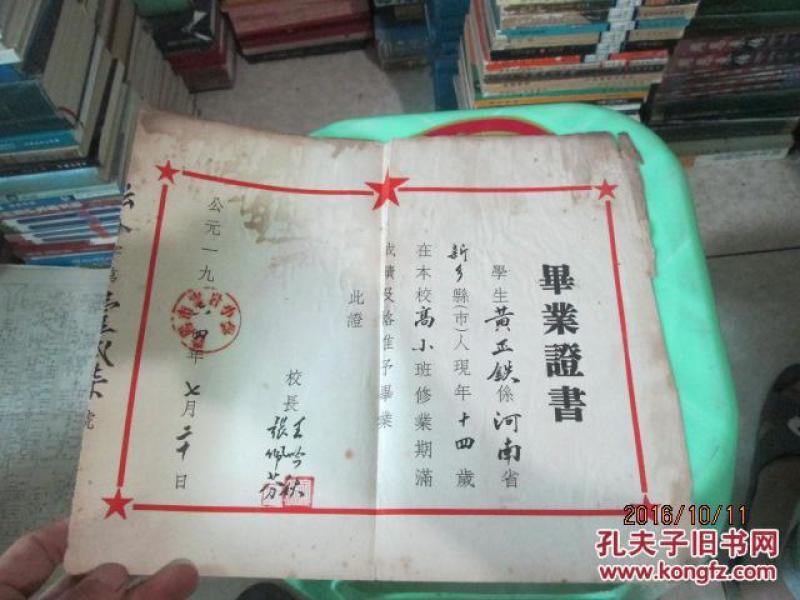 畢業證書
學生黄正鉄係河南省
新乡縣(市)人現年十四歲
在本校高小班修業期滿
成績及格准予畢業
此證
校長王吟秋
張佩芬
公元一九 四年七月二十日
2016/10/11
孔夫子旧书网
www.kongfz.com